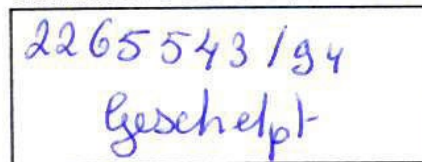 2265543/94
Geschelpt